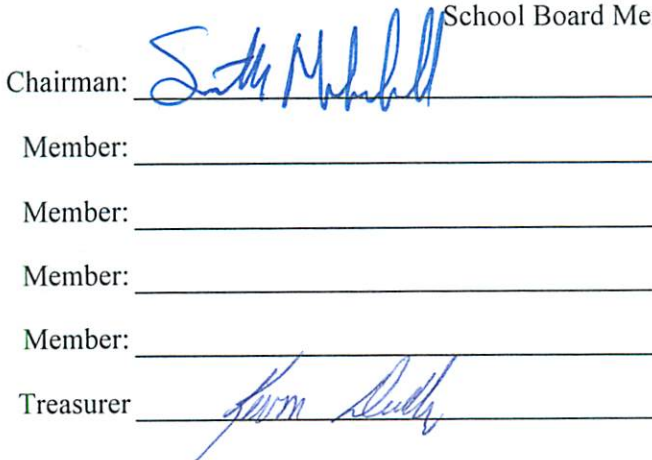 School Board Me
Chairman:
Member:
Member:
Member:
Member:
Treasurer